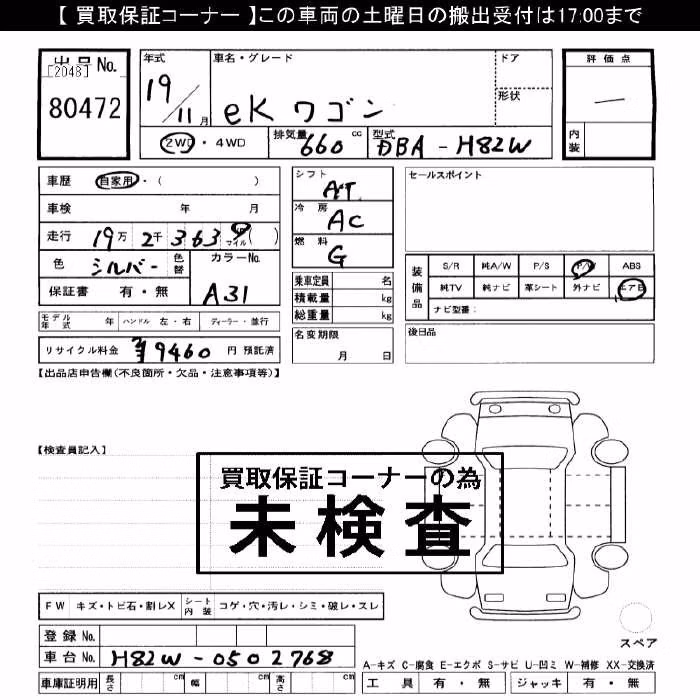 【 買取保証コーナー 】この車両の土曜日の搬出受付は17:00まで
出品 No.
[2048]
80472
年式
19
11月
車名・グレード
eK ワゴン
ドア
形状
評価点
—
内装
2WD ・ 4WD
排気量 660 cc
型式 DBA - H82W
車歴 自家用 ・( )
車検 年 月
走行 19万 2千 363 マイル( )
色 シルバー 色替
カラーNo.
A31
保証書 有・無
シフト
AT
冷房
AC
燃料
G
乗車定員 名
積載量 kg
総重量 kg
セールスポイント
装備品
S/R 純A/W P/S P/W ABS
純TV 純ナビ 革シート 外ナビ エアB
ナビ型番:
モデル年式 年 ハンドル 左・右 ディーラー・並行
名変期限
月 日
後日品
リサイクル料金 ¥9460 円 預託済
【出品店申告欄(不良箇所・欠品・注意事項等)】
【検査員記入】
買取保証コーナーの為
未検査
FW キズ・トビ石・割レX シート内装 コゲ・穴・汚レ・シミ・破レ・スレ
スペア
登録 No.
車台 No. H82W-0502768
A-キズ C-腐食 E-エクボ S-サビ U-凹ミ W-補修 XX-交換済
車庫証明用 長さ cm 幅 cm 高さ cm
工具 有・無 ジャッキ 有・無